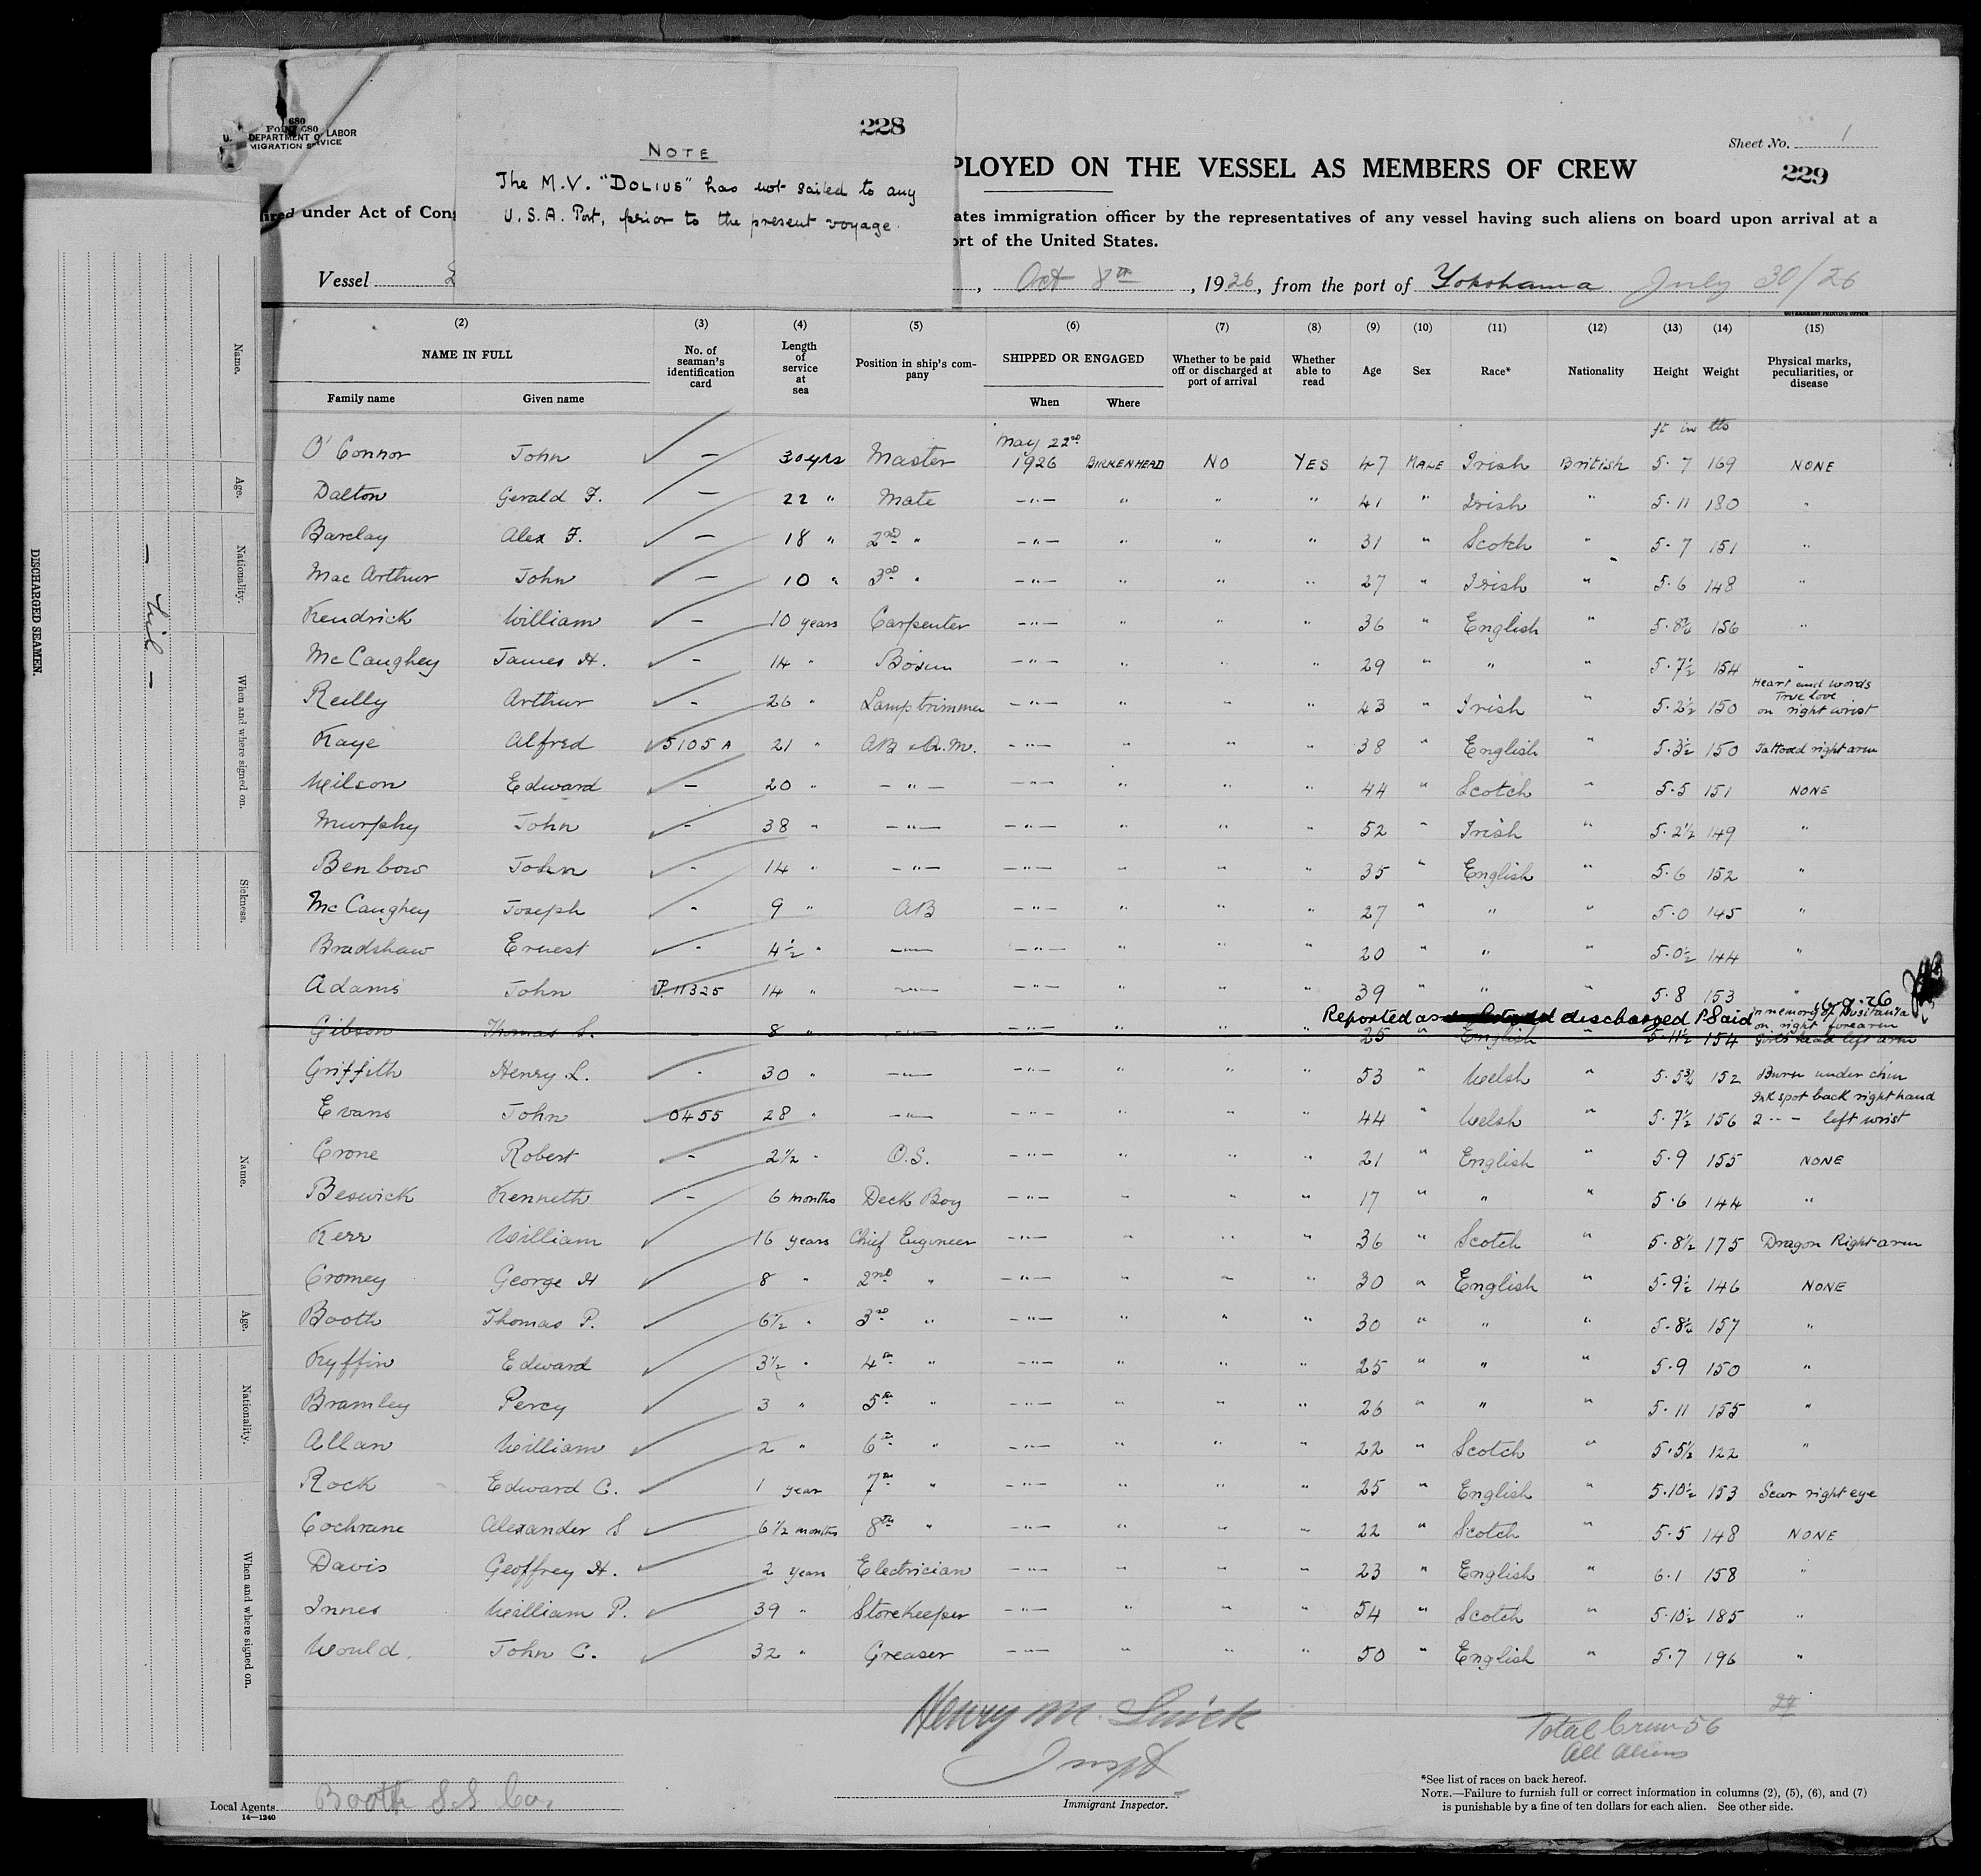 680
Form 680
U. DEPARTMENT OF LABOR
MIGRATION SERVICE
228
NOTE
The M.V. "DOLIUS" has not sailed to any
U.S.A. Port, prior to the present voyage.
Sheet No. 1
229
PLOYED ON THE VESSEL AS MEMBERS OF CREW
ired under Act of Cong
ates immigration officer by the representatives of any vessel having such aliens on board upon arrival at a
ort of the United States.
Vessel , Oct 8th , 1926, from the port of Yokohama July 30/26
GOVERNMENT PRINTING OFFICE
(2) (3) (4) (5) (6) (7) (8) (9) (10) (11) (12) (13) (14) (15)
NAME IN FULL
Family name Given name
No. of seaman's identification card
Length of service at sea
Position in ship's company
SHIPPED OR ENGAGED
When Where
Whether to be paid off or discharged at port of arrival
Whether able to read
Age
Sex
Race*
Nationality
Height
Weight
Physical marks, peculiarities, or disease
ft in lbs
O'Connor John – 30 yrs Master May 22nd 1926 BIRKENHEAD NO YES 47 MALE Irish British 5.7 169 NONE
Dalton Gerald F. – 22 " Mate –"– " " " 41 " Irish " 5.11 180 "
Barclay Alex F. – 18 " 2nd " –"– " " " 31 " Scotch " 5.7 151 "
Mac Arthur John – 10 " 3rd " –"– " " " 27 " Irish " 5.6 148 "
Kendrick William – 10 years Carpenter –"– " " " 36 " English " 156 "
McCaughey James H. – 14 " Bosun –"– " " " 29 " " " 5.7½ 154 "
Reilly Arthur – 26 " Lamptrimmer –"– " " " 43 " Irish " 5.2½ 150 Heart and words True love on right wrist
Kaye Alfred 5105A 21 " AB & Q.M. –"– " " " 38 " English " 5.3½ 150 Tattoed right arm
Neilson Edward – 20 " –"– –"– " " " 44 " Scotch " 5.5 151 NONE
Murphy John – 38 " –"– –"– " " " 52 " Irish " 5.2½ 149 "
Benbow John – 14 " –"– –"– " " " 35 " English " 5.6 152 "
McCaughey Joseph – 9 " AB –"– " " " 27 " " " 5.0 145 "
Bradshaw Ernest – 4½ " –"– –"– " " " 20 " " " 5.0½ 144 "
Adams John P.11325 14 " –"– –"– " " " 39 " " " 5.8 153 "
Reported as discharged P Said 16.9.26
Gibson Thomas S. 8 " –"– –"– " " " 25 " English " 5.11½ 154 In memory of Lusitania on right forearm Girls head left arm
Griffith Henry L. – 30 " –"– –"– " " " 53 " Welsh " 5.5¾ 152 Burn under chin
Evans John 0455 28 " –"– –"– " " " 44 " Welsh " 5.7½ 156 Ink spot back right hand 2 –"– left wrist
Crone Robert – 2½ " O.S. –"– " " " 21 " English " 5.9 155 NONE
Beswick Kenneth – 6 months Deck Boy –"– " " " 17 " " " 5.6 144 "
Kerr William 16 years Chief Engineer –"– " " " 36 " Scotch " 5.8½ 175 Dragon Right arm
Cromey George H 8 " 2nd " –"– " " " 30 " English " 5.9½ 146 NONE
Booth Thomas P. 6½ " 3rd " –"– " " " 30 " " " 157 "
Kyffin Edward 3½ " 4th " –"– " " " 25 " " " 5.9 150 "
Bramley Percy 3 " 5th " –"– " " " 26 " " " 5.11 155 "
Allan William 2 " 6th " –"– " " " 22 " Scotch " 5.5½ 122 "
Rock Edward C. 1 year 7th " –"– " " " 25 " English " 5.10½ 153 Scar right eye
Cochrane Alexander S 6½ months 8th " –"– " " " 22 " Scotch " 5.5 148 NONE
Davis Geoffrey H. 2 years Electrician –"– " " " 23 " English " 6.1 158 "
Innes William P. 39 " Storekeeper –"– " " " 54 " Scotch " 5.10½ 185 "
Would John C. 32 " Greaser –"– " " " 50 " English " 5.7 196 "
29
Total Crew 56
All Aliens
Inspt
Immigrant Inspector.
Local Agents. Booth S.S. Co.
14—1240
*See list of races on back hereof.
NOTE.—Failure to furnish full or correct information in columns (2), (5), (6), and (7)
is punishable by a fine of ten dollars for each alien. See other side.
DISCHARGED SEAMEN.
– Nil –
Name.
Age.
Nationality.
When and where signed on.
Sickness.
Name.
Age.
Nationality.
When and where signed on.